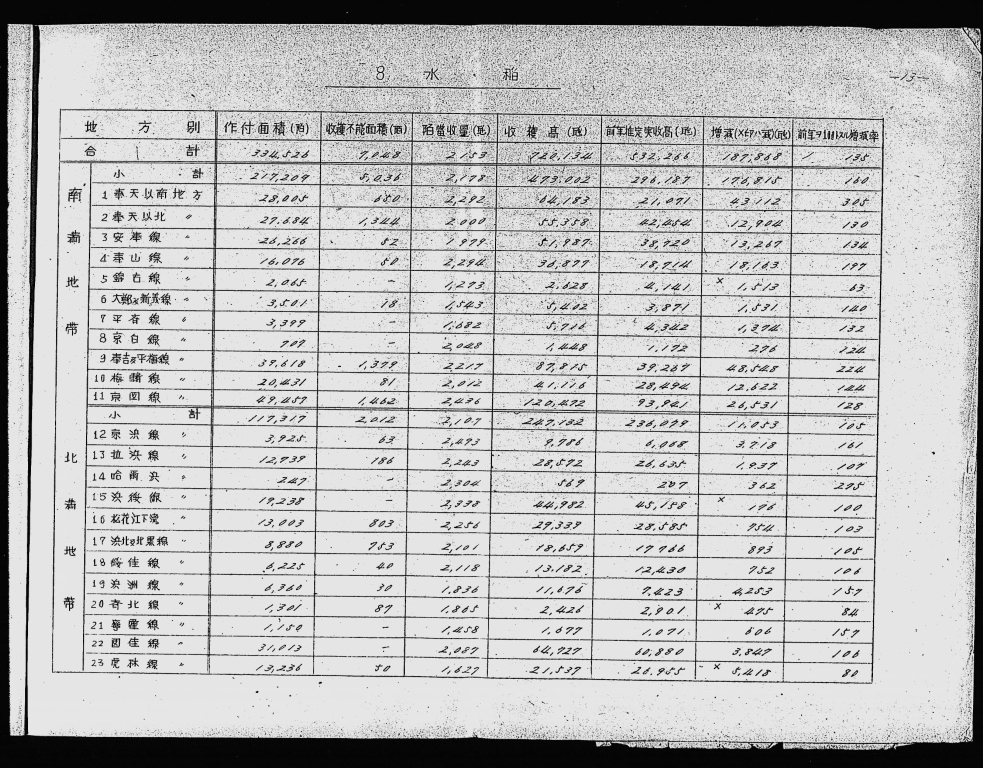 8 水稲
—13—
地方別 作付面積(陌) 收穫不能面積(陌) 陌當收量(瓩) 收穫高(瓲) 前年推定実收高(瓲) 増減(×印ハ減)(瓲) 前年ヲ100トスル増減率
合計 334,526 7,048 2,153 720,134 532,266 187,868 135
南満地帯
小計 217,209 5,036 2,178 473,002 296,187 176,815 160
1 奉天以南地方 28,005 650 2,292 64,183 21,071 43,112 305
2 奉天以北 〃 27,684 1,344 2,000 55,358 42,454 12,904 130
3 安奉線 〃 26,266 52 1,979 51,987 38,720 13,267 134
4 奉山線 〃 16,076 50 2,294 36,877 18,714 18,163 197
5 錦古線 〃 2,065 − 1,273 2,628 4,141 × 1,513 63
6 大鄭及新義線 〃 3,501 18 1,543 5,402 3,871 1,531 140
7 平斉線 〃 3,399 − 1,682 5,716 4,342 1,374 132
8 京白線 〃 707 − 2,048 1,448 1,172 276 124
9 奉吉及平梅線 〃 39,618 1,379 2,217 87,815 39,267 48,548 224
10 梅輯線 〃 20,431 81 2,012 41,116 28,494 12,622 144
11 京図線 〃 49,457 1,462 2,436 120,472 93,941 26,531 128
北満地帯
小計 117,317 2,012 2,107 247,132 236,079 11,053 105
12 京浜線 〃 3,925 63 2,493 9,786 6,068 3,718 161
13 拉浜線 〃 12,739 186 2,243 28,572 26,635 1,937 107
14 哈爾浜 〃 247 − 2,304 569 207 362 275
15 浜綏線 〃 19,238 − 2,338 44,982 45,158 × 176 100
16 松花江下流 〃 13,003 803 2,256 29,339 28,585 754 103
17 浜北及北黒線 〃 8,880 753 2,101 18,659 17,766 893 105
18 綏佳線 〃 6,225 40 2,118 13,182 12,430 752 106
19 浜洲線 〃 6,360 30 1,836 11,676 7,423 4,253 157
20 斉北線 〃 1,301 87 1,865 2,426 2,901 × 475 84
21 寧霍線 〃 1,150 − 1,458 1,677 1,071 606 157
22 図佳線 〃 31,013 − 2,087 64,727 60,880 3,847 106
23 虎林線 〃 13,236 50 1,627 21,537 26,955 × 5,418 80